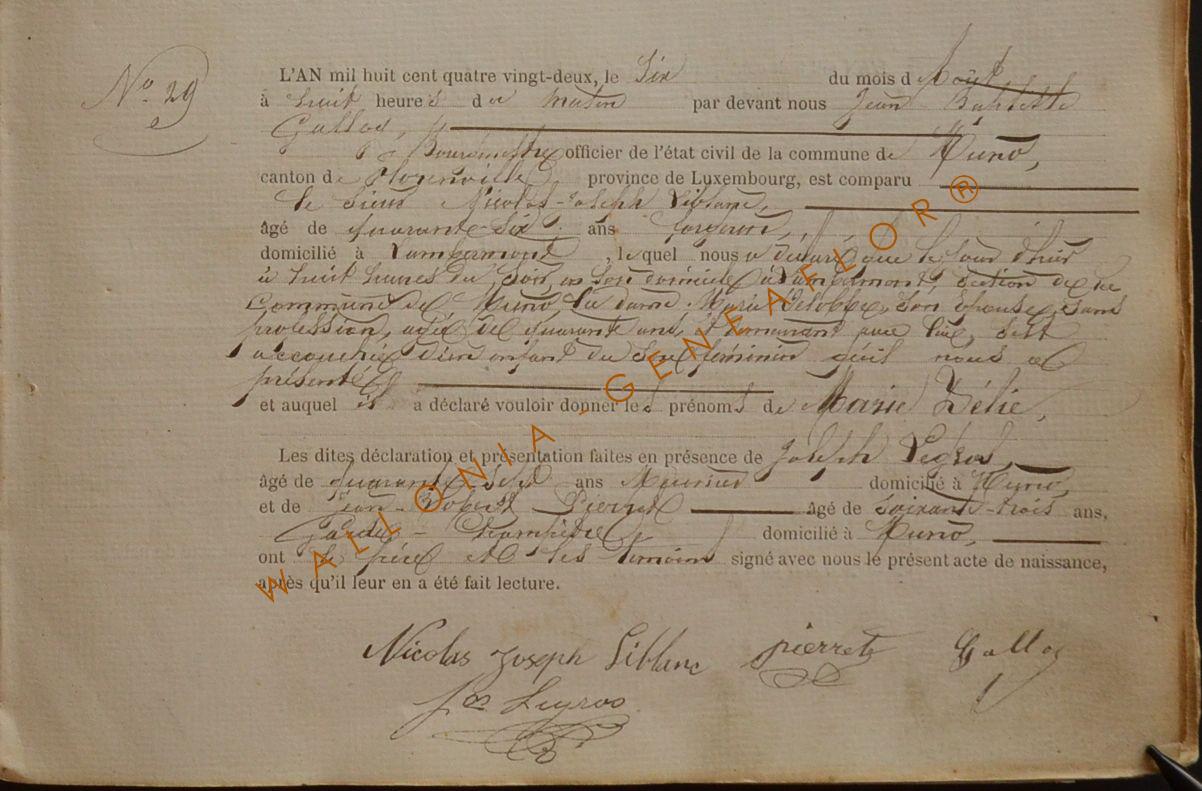 No 29
L'AN mil huit cent quatre vingt-deux, le Six du mois d'Août,
à huit heures du matin par devant nous Jean Baptiste
Gallos,
Bourgmestre officier de l'état civil de la commune de Muno,
canton de Florenville, province de Luxembourg, est comparu
le Sieur Nicolas-Joseph Liblanc,
âgé de quarante-six ans
domicilié à Lambermont, lequel nous a déclaré que le jour d'hier
à huit heures du soir, en son domicile à Lambermont, section de cette
Commune de Muno, la dame Marie son épouse, sans
profession, âgée de quarante ans, et demeurant avec lui, est
accouchée d'un enfant du sexe féminin qu'il nous a
présenté
et auquel il a déclaré vouloir donner les prénoms de Marie Zélie,
Les dites déclaration et présentation faites en présence de Joseph Legros
âgé de quarante-sept ans Meunier domicilié à Muno,
et de Jean-Robert Pierret âgé de soixante-trois ans,
Garde-Champêtre domicilié à Muno,
ont le père et les témoins signé avec nous le présent acte de naissance,
après qu'il leur en a été fait lecture.
Nicolas Joseph Liblanc pierret Gallos
Jos Legros
WALLONIA - GENEAFLOR®